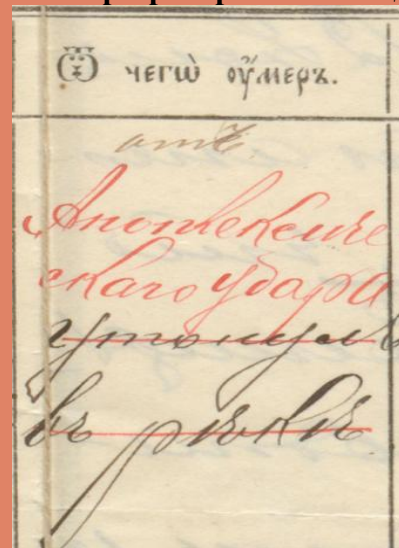 Ѿ чегѡ̀ оу҆́меръ.
отъ
Апоплексиче
скаго удара
утонулъ
въ рѣкѣ